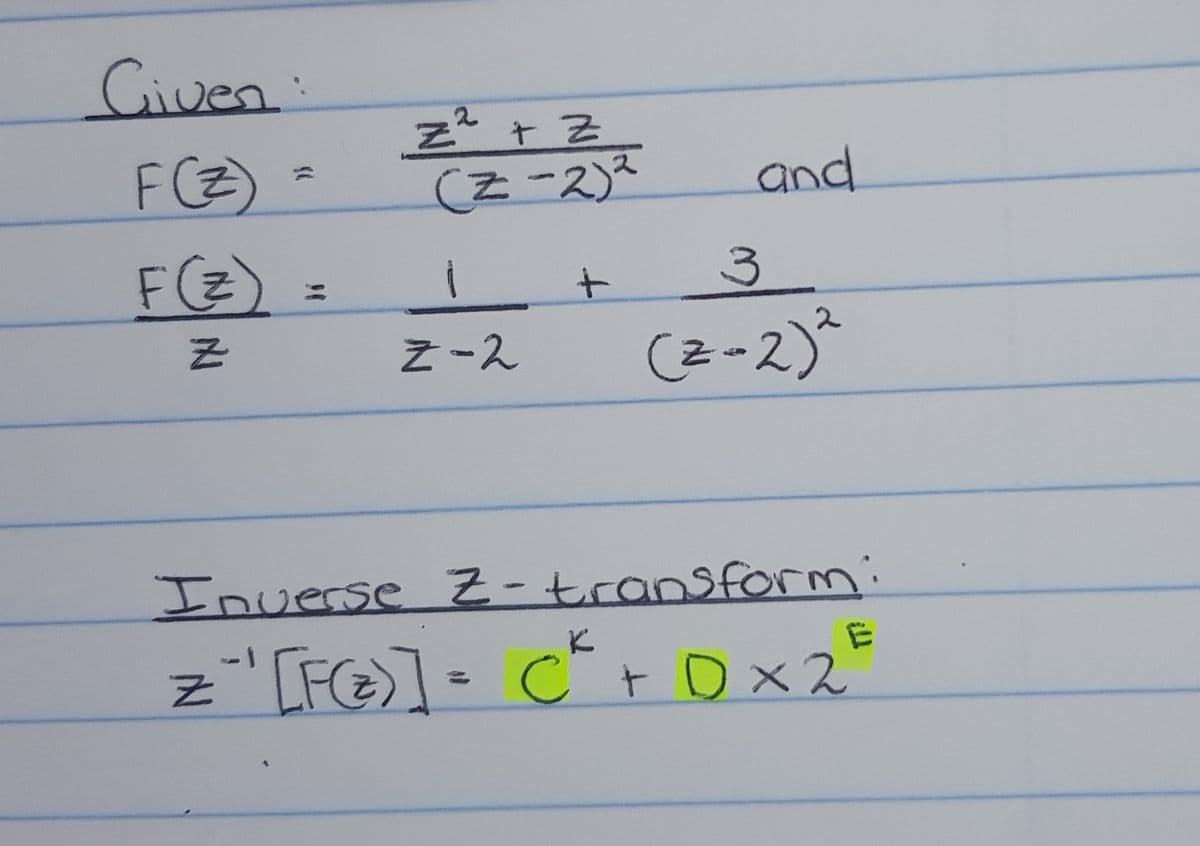 Given:
F(z) = z² + z / (z-2)² and
F(z) / z = 1 / z-2 + 3 / (z-2)²
Inverse z-transform:
z⁻¹ [F(z)] = C^K + D × 2^E